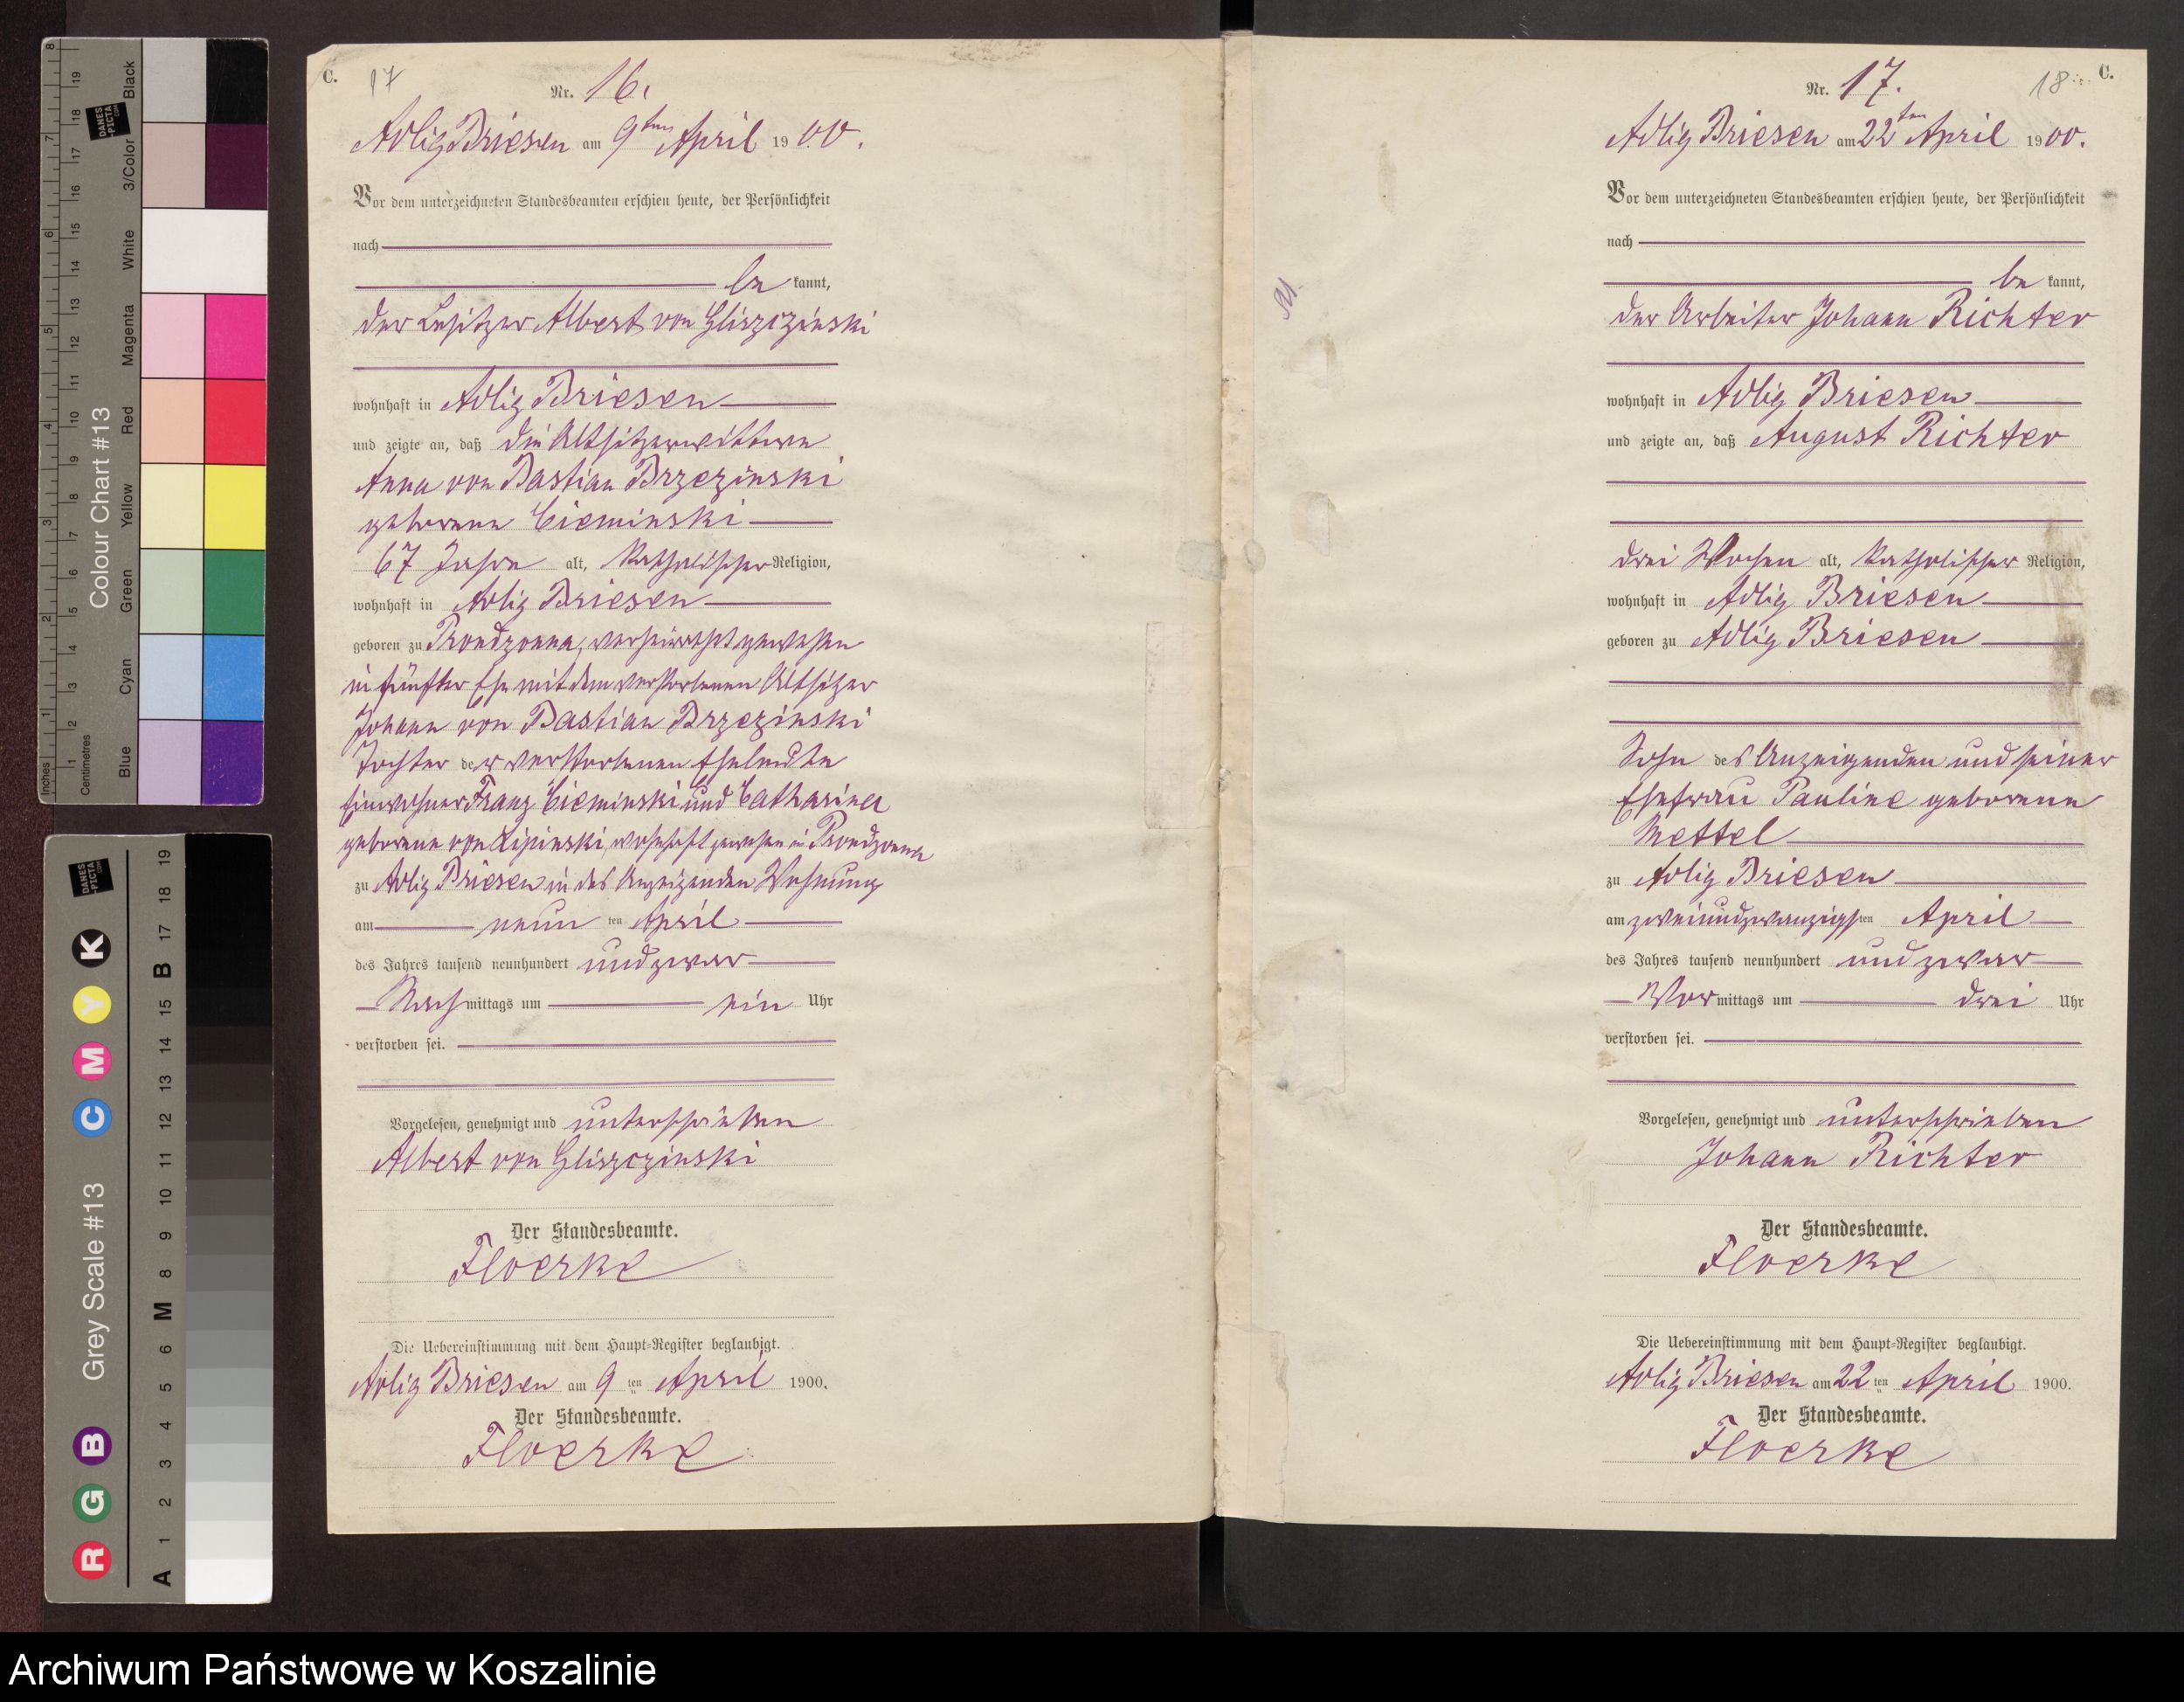 C. 17
Nr. 16.
Adlig Briesen am 9ten April 1900.
Vor dem unterzeichneten Standesbeamten erschien heute, der Persönlichkeit
nach
be kannt,
der Besitzer Albert von Gliszczinski
wohnhaft in Adlig Briesen
und zeigte an, daß die Altsitzerwittwe
Anna von Bastian Brzezinski
geborene Cieminski
67 Jahre alt, katholischer Religion,
wohnhaft in Adlig Briesen
geboren zu Prondzonna, verheirathet gewesen
in fünfter Ehe mit dem verstorbenen Altsitzer
Johann von Bastian Brzezinski
Tochter der verstorbenen Eheleute
Einwohner Franz Cieminski und Catharina
geborene von Lipinski, wohnhaft gewesen in Prondzonna
zu Adlig Briesen in des Anzeigenden Wohnung
am neun ten April
des Jahres tausend neunhundert und zwar
Nach mittags um ein Uhr
verstorben sei.
Vorgelesen, genehmigt und unterschrieben
Albert von Gliszczinski
Der Standesbeamte.
Floerke
Die Uebereinstimmung mit dem Haupt-Register beglaubigt.
Adlig Briesen am 9 ten April 1900.
Der Standesbeamte.
Floerke
18 C.
Nr. 17.
Adlig Briesen am 22ten April 1900.
Vor dem unterzeichneten Standesbeamten erschien heute, der Persönlichkeit
nach
be kannt,
der Arbeiter Johann Richter
wohnhaft in Adlig Briesen
und zeigte an, daß August Richter
drei Wochen alt, katholischer Religion,
wohnhaft in Adlig Briesen
geboren zu Adlig Briesen
Sohn des Anzeigenden und seiner
Ehefrau Pauline geborene
Mettel
zu Adlig Briesen
am zweiundzwanzigsten April
des Jahres tausend neunhundert und zwar
Vor mittags um drei Uhr
verstorben sei.
Vorgelesen, genehmigt und unterschrieben
Johann Richter
Der Standesbeamte.
Floerke
Die Uebereinstimmung mit dem Haupt-Register beglaubigt.
Adlig Briesen am 22 ten April 1900.
Der Standesbeamte.
Floerke
Colour Chart #13
Black
3/Color
White
Magenta
Red
Yellow
Green
Cyan
Blue
Inches
Centimetres
DANES
-PICTA
.COM
Grey Scale #13
R G B C M Y K
A 1 2 3 4 5 6 M 8 9 10 11 12 13 14 15 B 17 18 19
Archiwum Państwowe w Koszalinie